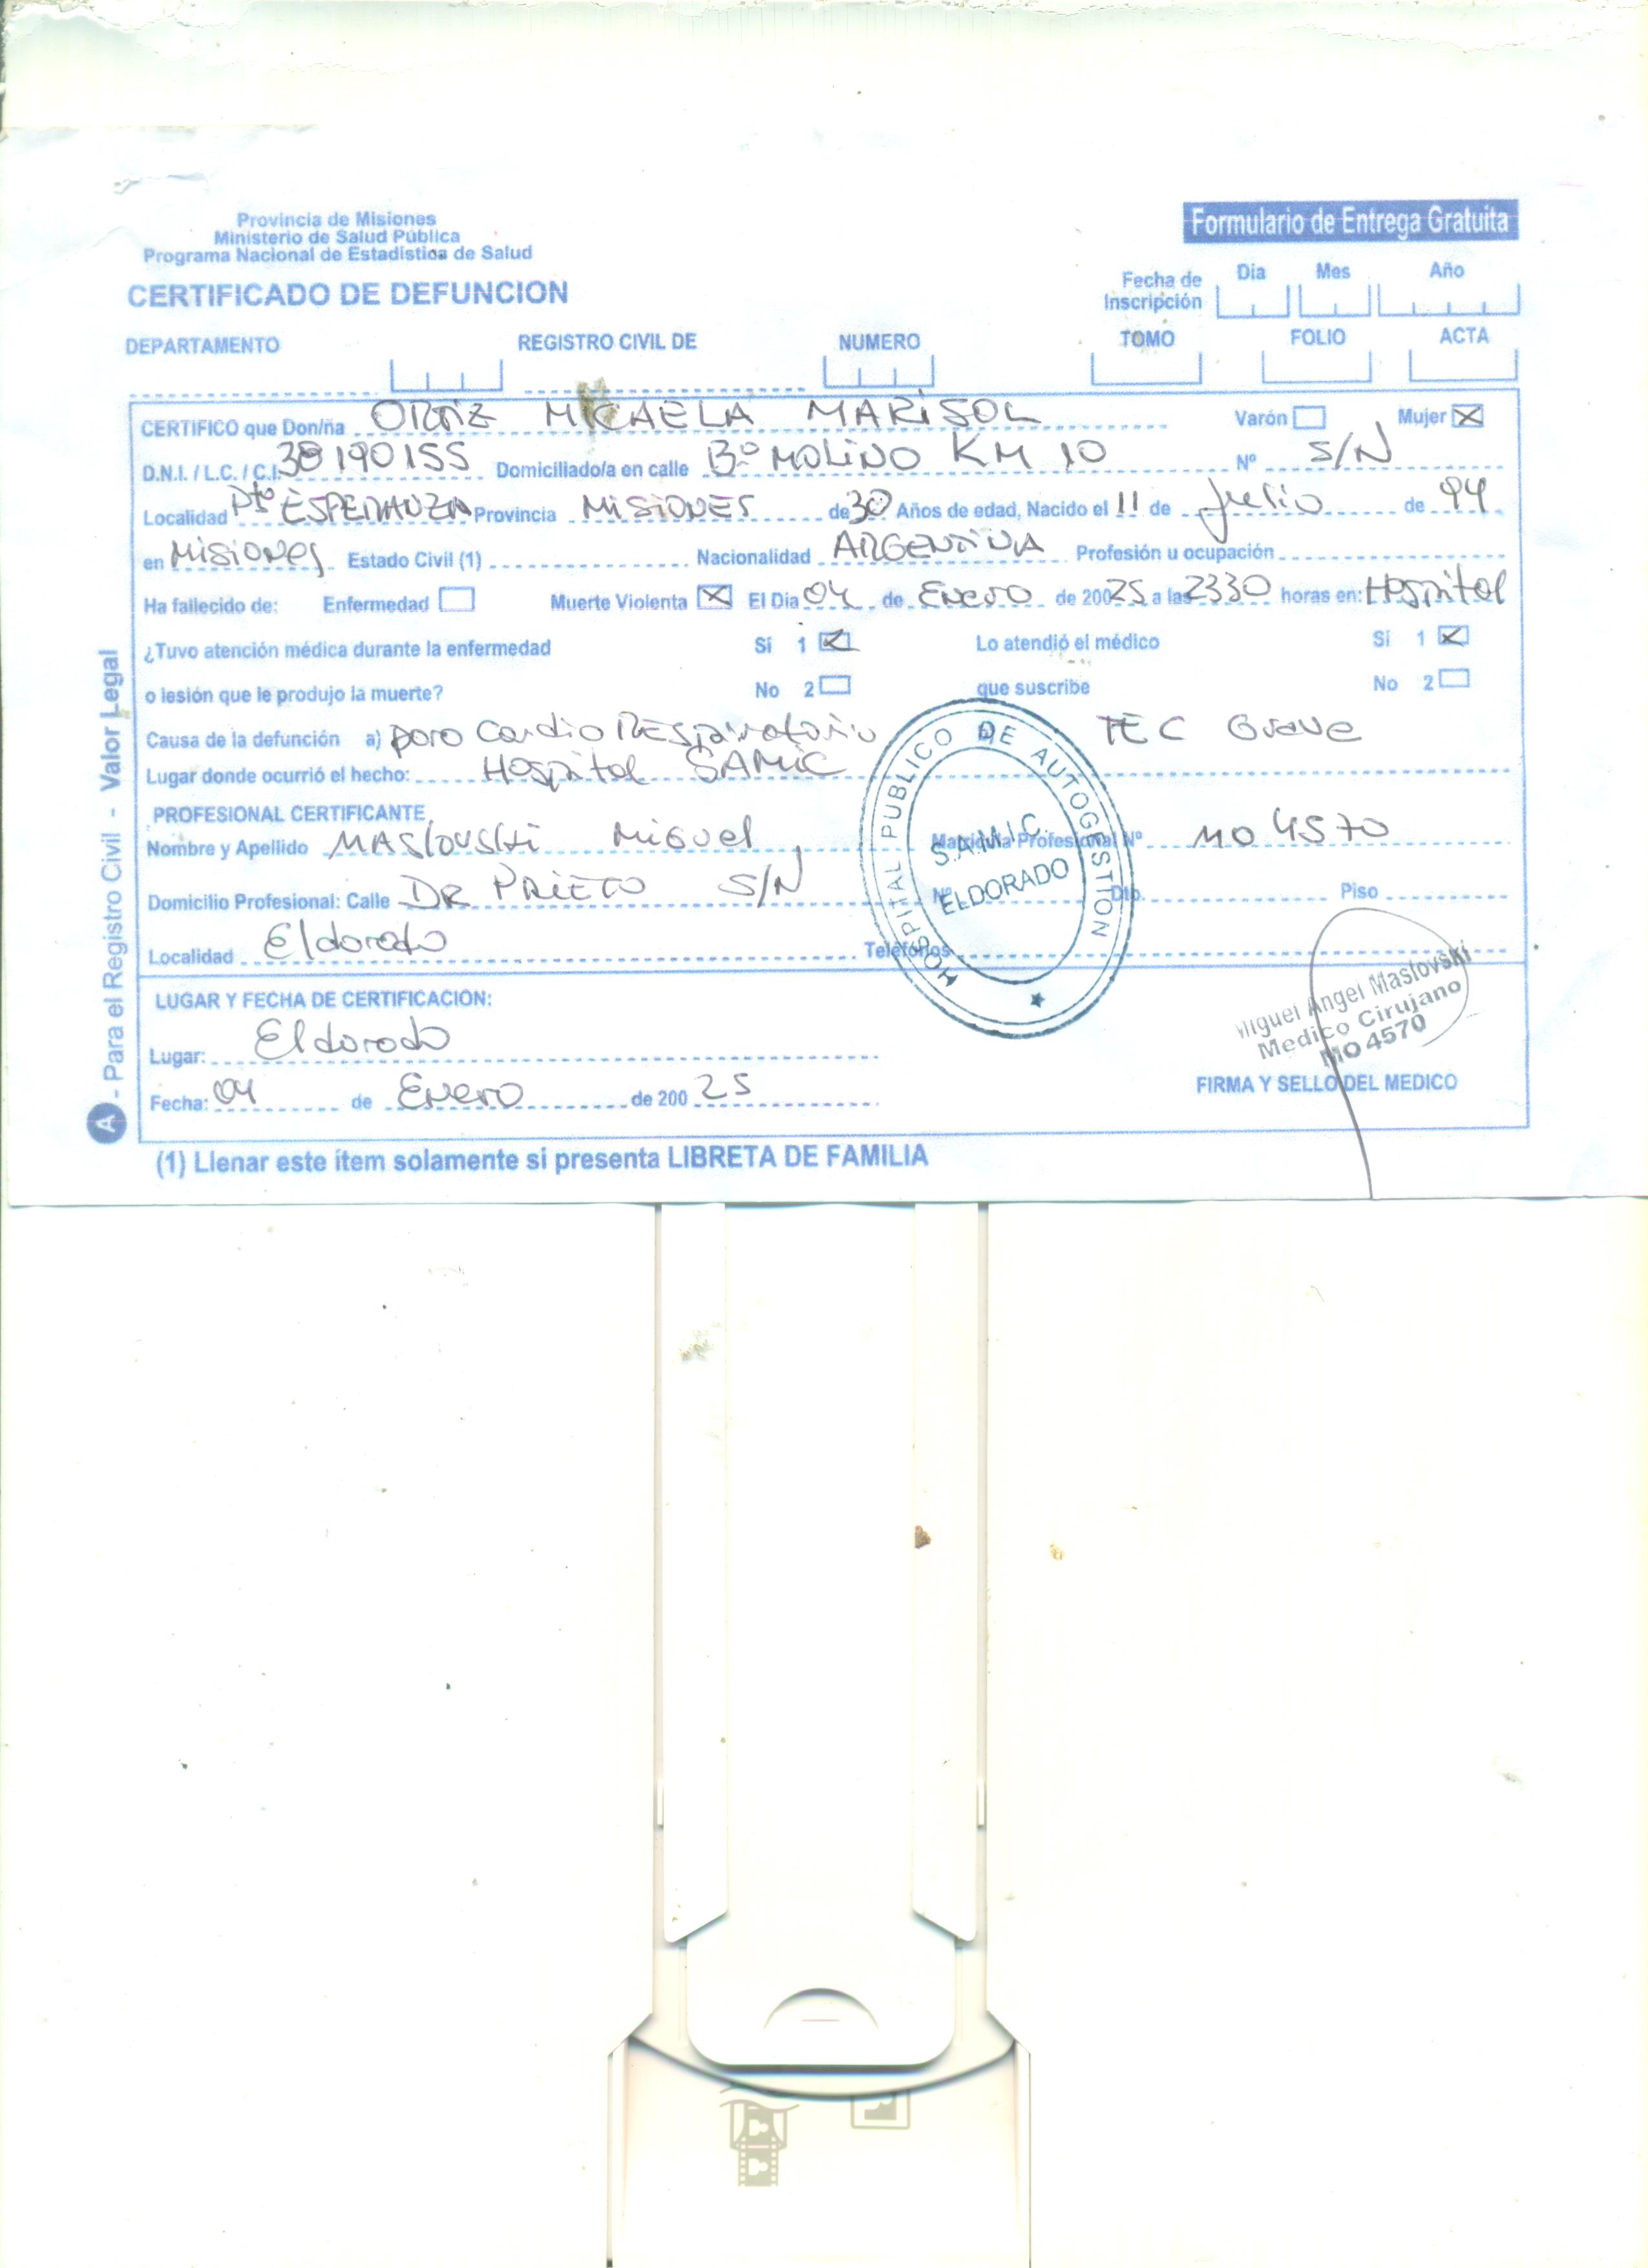 Provincia de Misiones
Ministerio de Salud Pública
Programa Nacional de Estadística de Salud
Formulario de Entrega Gratuita
CERTIFICADO DE DEFUNCION
Fecha de Inscripción Dia Mes Año
DEPARTAMENTO REGISTRO CIVIL DE NUMERO TOMO FOLIO ACTA
CERTIFICO que Don/ña ORTIZ MICAELA MARISOL Varón Mujer X
D.N.I. / L.C. / C.I. 38190155 Domiciliado/a en calle Bº MOLINO KM 10 Nº S/N
Localidad Pto ESPERANZA Provincia MISIONES de 30 Años de edad, Nacido el 11 de Julio de 94
en MISIONES Estado Civil (1) Nacionalidad ARGENTINA Profesión u ocupación
Ha fallecido de: Enfermedad Muerte Violenta X El Dia 04 de Enero de 20025 a las 2330 horas en: Hospital
¿Tuvo atención médica durante la enfermedad Sí 1 Lo atendió el médico Sí 1
o lesión que le produjo la muerte? No 2 que suscribe No 2
Causa de la defunción a) paro Cardio Respiratorio TEC Grave
Lugar donde ocurrió el hecho: Hospital SAMIC
PROFESIONAL CERTIFICANTE
Nombre y Apellido MASLOVSKI Miguel Matrícula Profesional Nº MO 4570
Domicilio Profesional: Calle DR PRIETO S/N Nº Dto. Piso
Localidad Eldorado Teléfonos
HOSPITAL PUBLICO DE AUTOGESTION
S.A.M.I.C.
ELDORADO
LUGAR Y FECHA DE CERTIFICACION:
Lugar: Eldorado
Fecha: 04 de Enero de 200 25
Miguel Angel Maslovski
Medico Cirujano
MO 4570
FIRMA Y SELLO DEL MEDICO
(1) Llenar este ítem solamente si presenta LIBRETA DE FAMILIA
A - Para el Registro Civil - Valor Legal